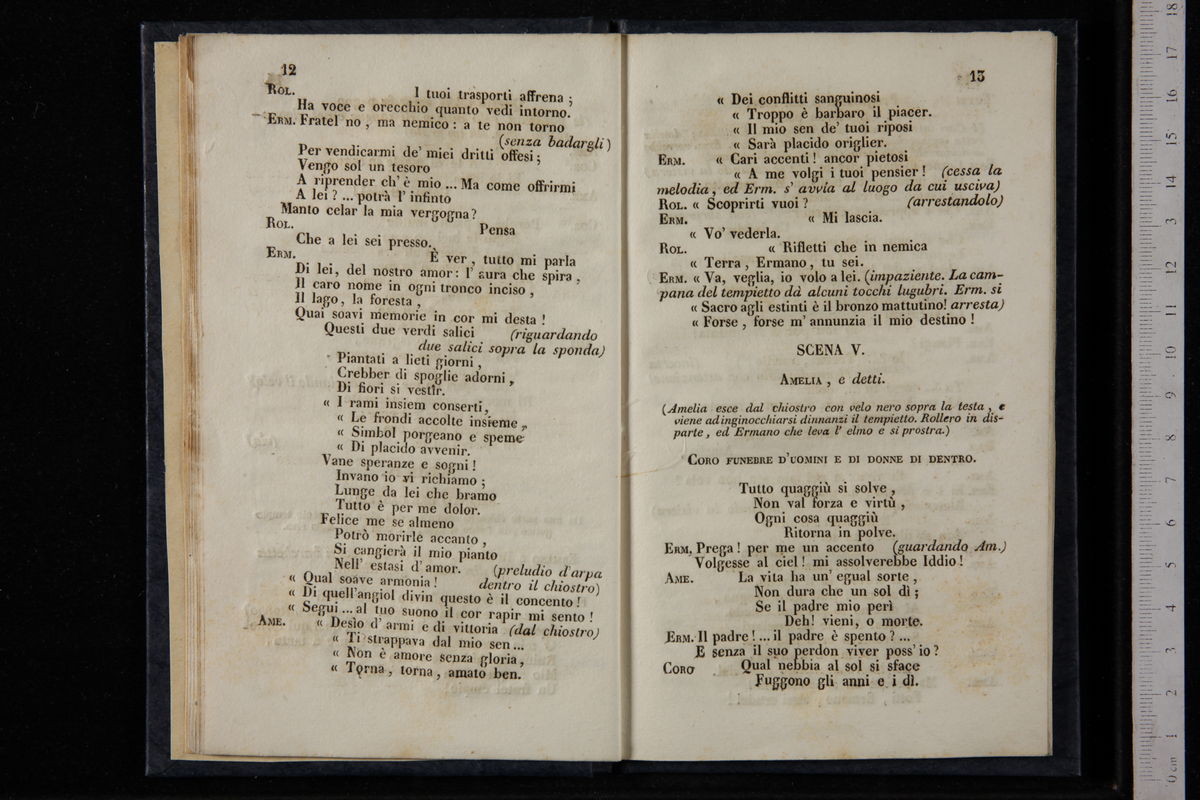 12
ROL. I tuoi trasporti affrena ;
Ha voce e orecchio quanto vedi intorno.
ERM. Fratel no , ma nemico : a te non torno
(senza badargli)
Per vendicarmi de' miei dritti offesi ;
Vengo sol un tesoro
A riprender ch' è mio ... Ma come offrirmi
A lei ? ... potrà l' infinto
Manto celar la mia vergogna ?
ROL. Pensa
Che a lei sei presso.
ERM. È ver , tutto mi parla
Di lei, del nostro amor : l' aura che spira ,
Il caro nome in ogni tronco inciso ,
Il lago , la foresta ,
Quai soavi memorie in cor mi desta !
Questi due verdi salici (riguardando
due salici sopra la sponda)
Piantati a lieti giorni ,
Crebber di spoglie adorni ,
Di fiori si vestîr.
« I rami insiem conserti,
« Le frondi accolte insieme ,
« Simbol porgeano e speme
« Di placido avvenir.
Vane speranze e sogni !
Invano io vi richiamo ;
Lunge da lei che bramo
Tutto è per me dolor.
Felice me se almeno
Potrò morirle accanto ,
Si cangierà il mio pianto
Nell' estasi d' amor. (preludio d'arpa
« Qual soave armonia ! dentro il chiostro)
« Di quell'angiol divin questo è il concento !
« Segui ... al tuo suono il cor rapir mi sento !
AME. « Desìo d' armi e di vittoria (dal chiostro)
« Ti strappava dal mio sen ...
« Non è amore senza gloria,
« Torna , torna , amato ben.
13
« Dei conflitti sanguinosi
« Troppo è barbaro il piacer.
« Il mio sen de' tuoi riposi
« Sarà placido origlier.
ERM. « Cari accenti ! ancor pietosi
« A me volgi i tuoi pensier ! (cessa la
melodia, ed Erm. s' avvia al luogo da cui usciva)
ROL. « Scoprirti vuoi ? (arrestandolo)
ERM. « Mi lascia.
« Vo' vederla.
ROL. « Rifletti che in nemica
« Terra , Ermano , tu sei.
ERM. « Va, veglia, io volo a lei. (impaziente. La cam-
pana del tempietto dà alcuni tocchi lugubri. Erm. si
« Sacro agli estinti è il bronzo mattutino! arresta)
« Forse , forse m' annunzia il mio destino !
SCENA V.
AMELIA , e detti.
(Amelia esce dal chiostro con velo nero sopra la testa , e
viene ad inginocchiarsi dinnanzi il tempietto. Rollero in dis-
parte , ed Ermano che leva l' elmo e si prostra.)
CORO FUNEBRE D'UOMINI E DI DONNE DI DENTRO.
Tutto quaggiù si solve ,
Non val forza e virtù ,
Ogni cosa quaggiù
Ritorna in polve.
ERM. Prega ! per me un accento (guardando Am.)
Volgesse al ciel ! mi assolverebbe Iddio !
AME. La vita ha un' egual sorte ,
Non dura che un sol dì ;
Se il padre mio perì
Deh! vieni, o morte.
ERM. Il padre ! ... il padre è spento ? ...
E senza il suo perdon viver poss' io ?
CORO Qual nebbia al sol si sface
Fuggono gli anni e i dì.
0 cm 1 2 3 4 5 6 7 8 9 10 11 12 13 14 15 16 17 18